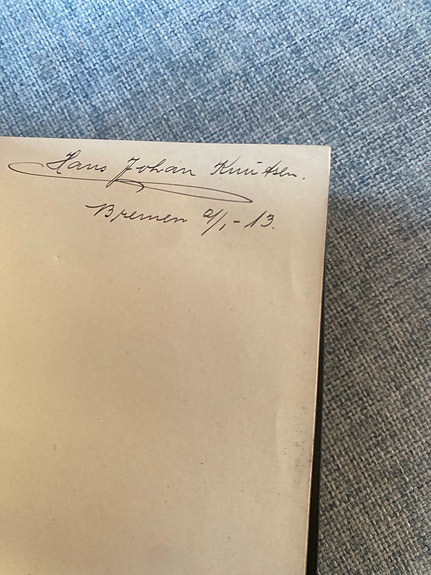 Hans Johan Knutsen.
Bremen 2/1-13.